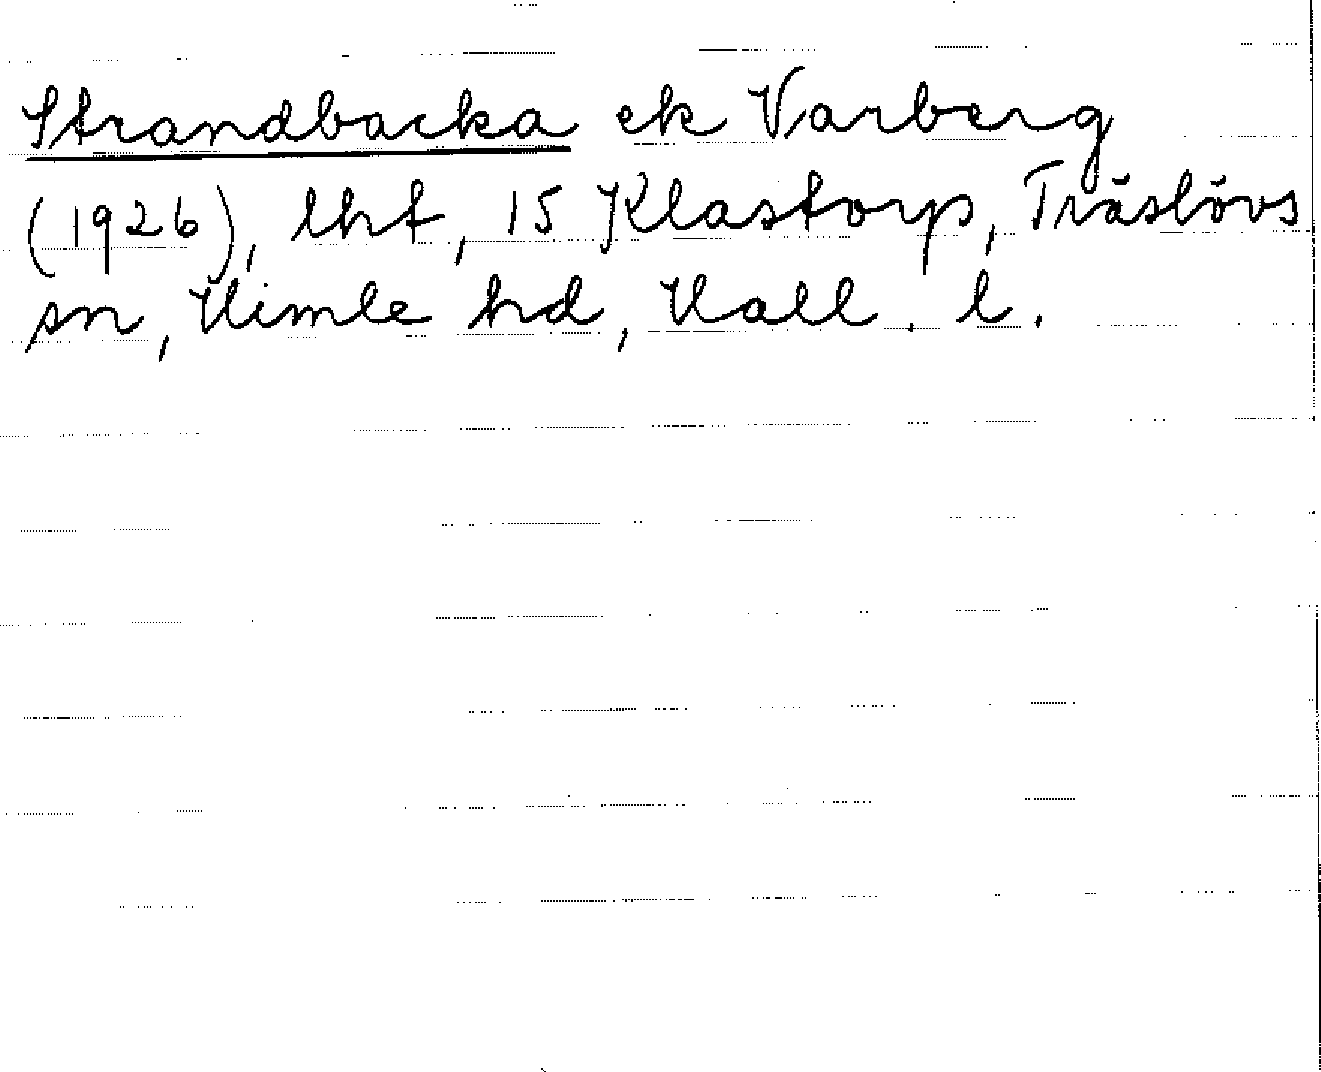 Strandbacka ek Varberg
(1926), lht, 15 Klastorp, Träslövs
sn, Himle hd, Hall. l.